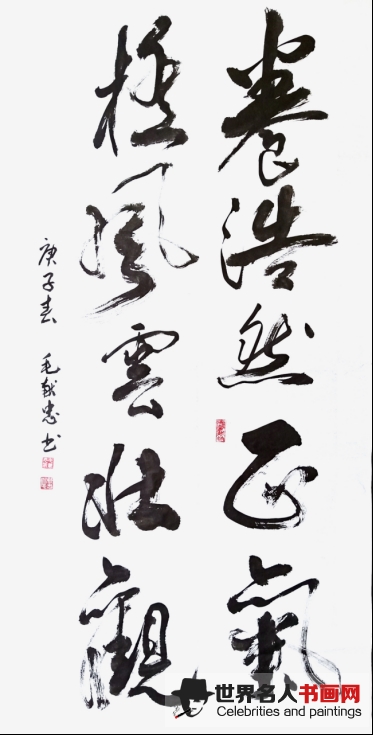 養浩然正氣
極風雲壯觀
庚子春 毛献忠书
世界名人书画网
Celebrities and paintings